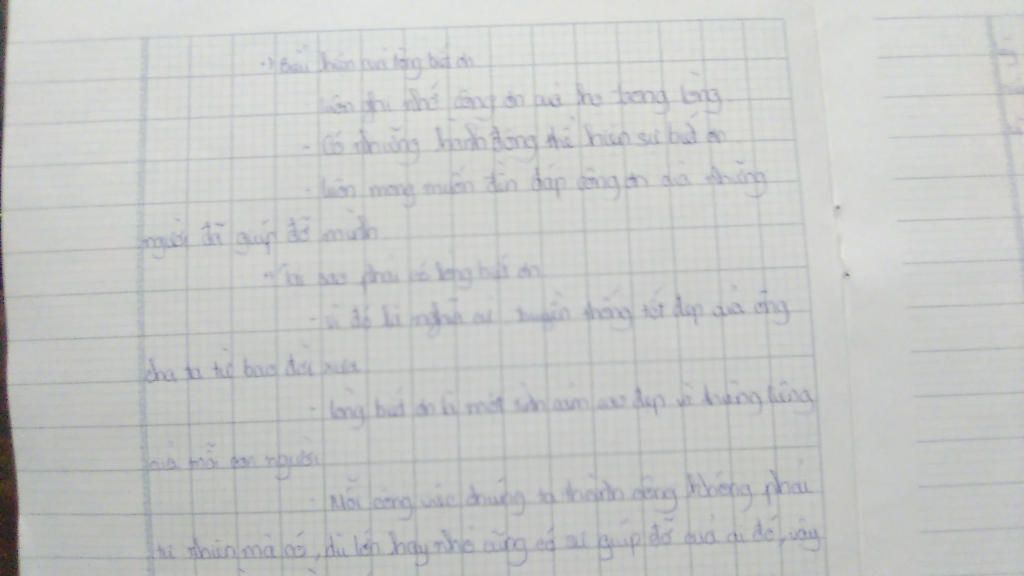 Biểu hiện của lòng biết ơn
- luôn ghi nhớ công ơn của họ trong lòng
- Có những hành động thể hiện sự biết ơn
- luôn mong muốn đền đáp công ơn của những
người đã giúp đỡ mình
Tại sao phải có lòng biết ơn
- vì đó là nghĩa cử truyền thống tốt đẹp của ông
cha ta từ bao đời xưa
- lòng biết ơn là một tình cảm cao đẹp và thiêng liêng
của mỗi con người
- Mỗi công việc chúng ta thành công không phải
tự nhiên mà có, dù lớn hay nhỏ cũng có sự giúp đỡ của ai đó, vậy